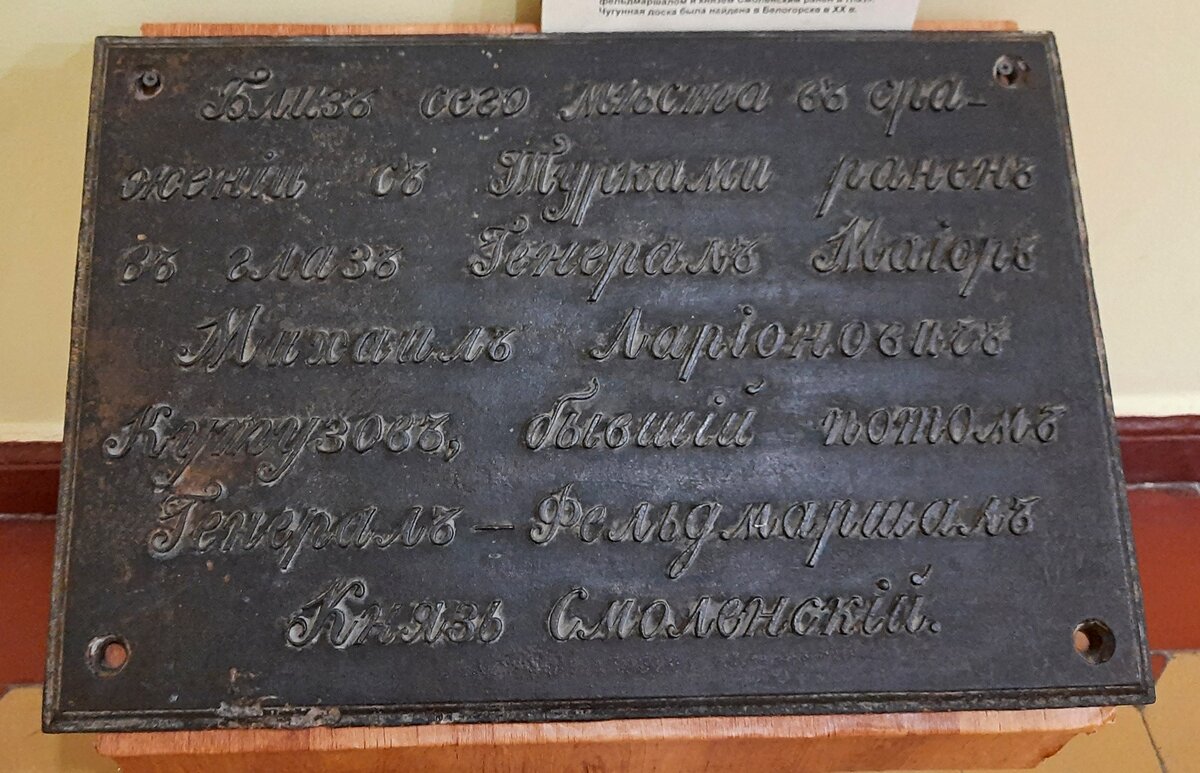 фельдмаршалом и князем Смоленским
Чугунная доска была найдена в Белогорске в XX в.
Близъ сего мѣста въ сра-
женіи съ Турками раненъ
въ глазъ Генералъ Маіоръ
Михаилъ Ларіоновичъ
Кутузовъ, бывшій потомъ
Генералъ – Фельдмаршалъ
Князь Смоленскій.